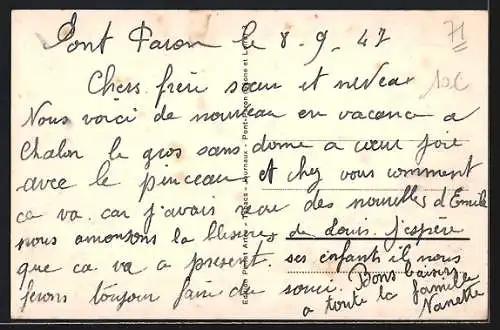 Pont Paron le 8-9-47
71
Chers frère sœur et neveax
Nous voici de nouveau en vacance a
Chalon le gros sans dome a cœur joie
avec le pinceau et chez vous comment
ca va. car j'avais reçu des nouvelles d'Emile
nous la blessure de Louis. j'espère
que ca va a present. ses enfants il nous
ferons toujour faire du souci. Bons baisers
a toute la famille
Nanette